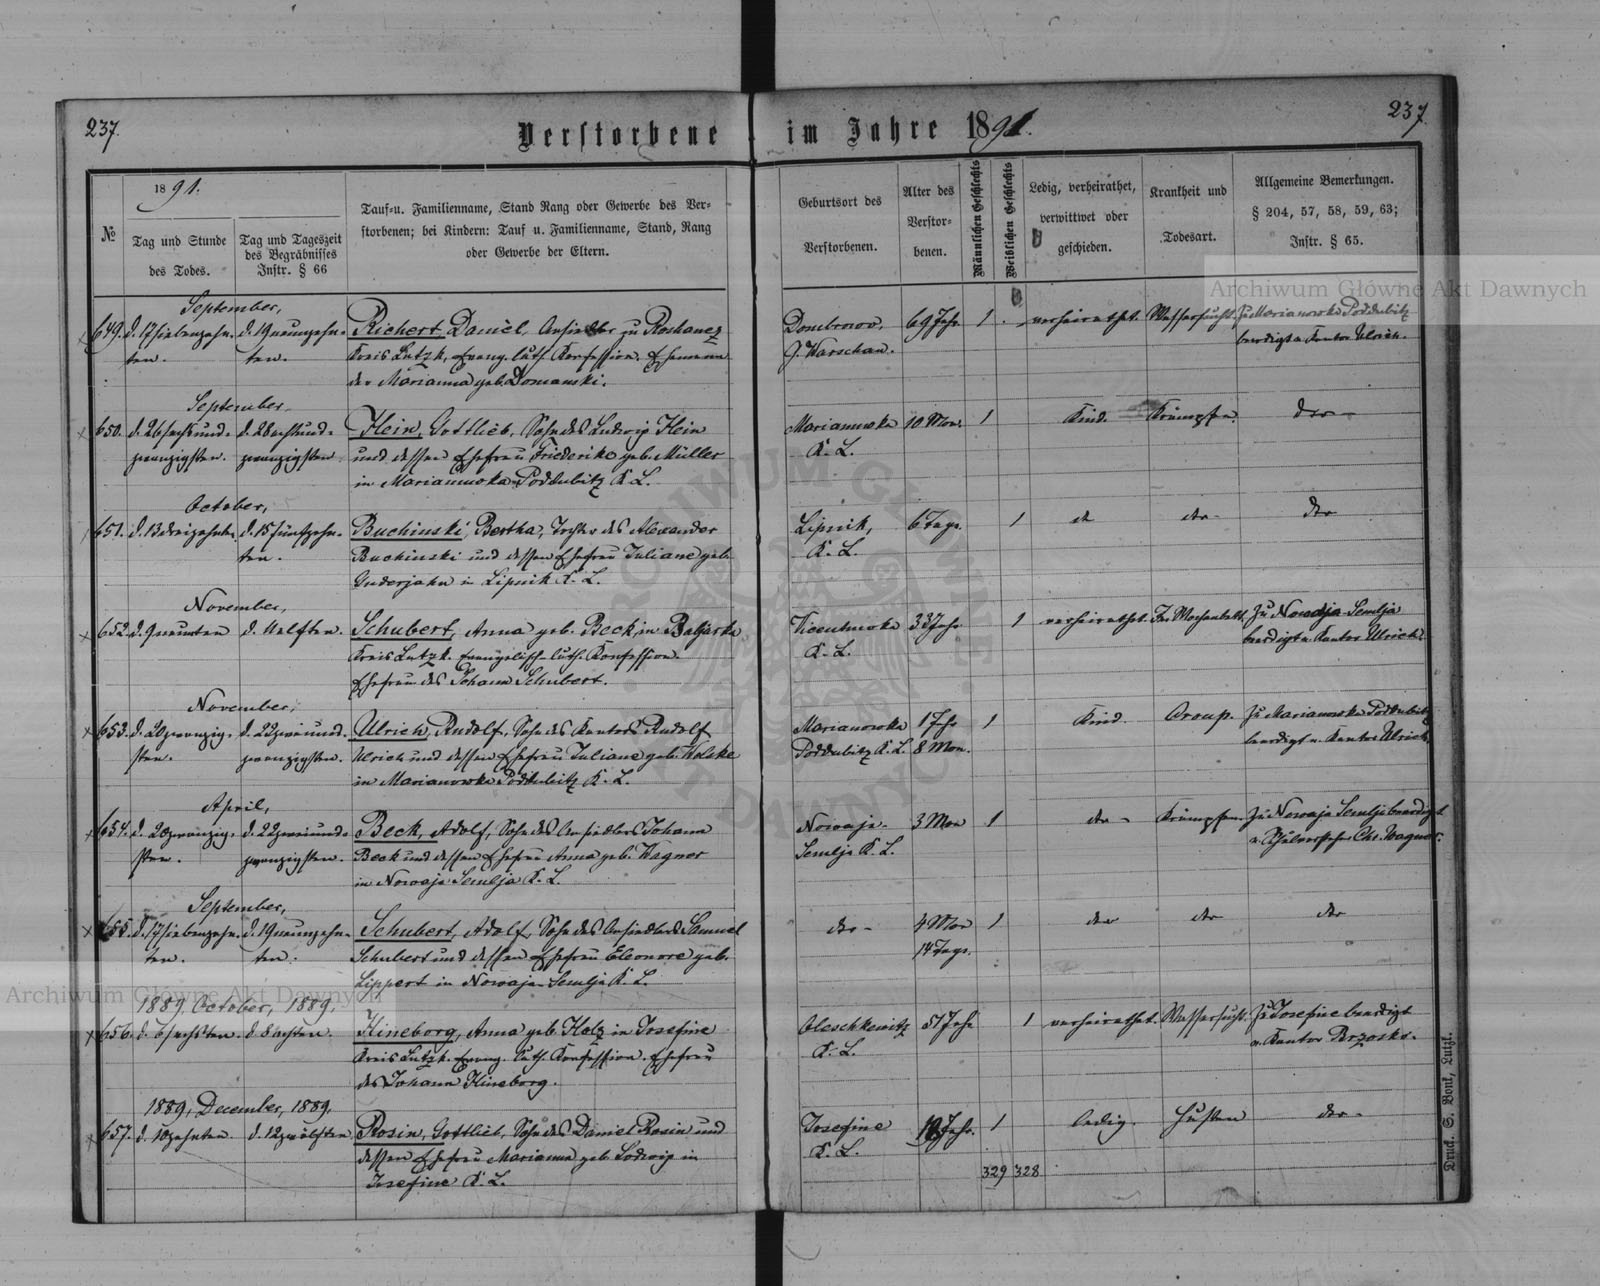 237.
237.
Verstorbene im Jahre 1891.
№
1891.
Tag und Stunde des Todes.
Tag und Tageszeit des Begräbnisses Instr. § 66
Tauf- u. Familienname, Stand Rang oder Gewerbe des Ver-
storbenen; bei Kindern: Tauf u. Familienname, Stand, Rang
oder Gewerbe der Eltern.
Geburtsort des Verstorbenen.
Alter des Verstor-
benen.
Männlichen Geschlechts
Weiblichen Geschlechts
Ledig, verheirathet, verwittwet oder geschieden.
Krankheit und Todesart.
Allgemeine Bemerkungen.
§ 204, 57, 58, 59, 63;
Instr. § 65.
September,
649. d. 17 siebenzehn- d. 19 neunzehn- Richert, Daniel, Ansiedler zu Dombrow, 69 Jahr. 1 verheirathet. Wassersucht. Zu Marianowka Poddubitz
ten. ten. Kreis Lutzk, evang. luth. Konfession. Ehemann G. Warschau. beerdigt v. Kantor Ulrich.
der Marianna geb. Domanski.
September,
650. d. 26 sechsund- d. 28 achtund- Klein, Gottlieb, Sohn des Ludwig Klein Marianowka 10 Mon. 1 Kind. Krämpfe. do-
zwanzigsten. zwanzigsten und dessen Ehefrau Friederike geb. Müller K. L.
in Marianowka Poddubitz K. L.
October,
651. d. 13 dreizehnten d. 15 fünfzehn- Buchinski, Bertha, Tochter des Alexander Lipnik, 6 Tage. 1 do do- do
ten. Buchinski und dessen Ehefrau Juliane geb. K. L.
Guderjahn in Lipnik K. L.
November,
652. d. 9 neunten d. 11 elften. Schubert, Anna geb. Beck, in 33 Jahr 1 verheirathet. Im Wochenbett. Zu Nowaja-Semlja
Kreis Lutzk. evangelisch-luth. Konfession. K. L. beerdigt v. Kantor Ulrich.
Ehefrau des Johann Schubert.
November,
653. d. 20 zwanzig- d. 22 zweiund- Ulrich, Rudolf, Sohn des Kantors Rudolf Marianowka 1 Jahr 1 Kind. Croup. Zu Marianowka Poddubitz
sten. zwanzigsten. Ulrich und dessen Ehefrau Juliane geb. Poddubitz K. L. 8 Mon. beerdigt v. Kantor Ulrich.
in Marianowka Poddubitz K. L.
April,
654. d. 20 zwanzig- d. 22 zweiund- Beck, Adolf, Sohn des Ansiedlers Johann Nowaja- 3 Mon 1 do- Krämpfen. Zu Nowaja Semlja beerdigt
sten. zwanzigsten. Beck und dessen Ehefrau Anna geb. Wagner Semlja K. L. v. Chr. Wagner.
in Nowaja Semlja K. L.
September,
655. d. 17 siebenzehn- d. 19 neunzehn- Schubert, Adolf, Sohn des Ansiedlers Samuel do- 4 Mon 1 do do do
ten. ten. Schubert und dessen Ehefrau Eleonore geb. 14 Tage.
Lippert in Nowaja-Semlja K. L.
1889, October, 1889.
656. d. 6 sechsten. d. 8 achten. Hineborg, Anna geb. Holz in Josefine Oleschkewitz 51 Jahr 1 verheirathet. Wassersucht. Zu Josefine beerdigt
Kreis Lutzk. evang. luth. Konfession. Ehefrau K. L. v. Kantor
des Johann Hineborg.
1889, December, 1889.
657. d. 10 zehnten. d. 12 zwölften Rosin, Gottlieb, Sohn des Daniel Rosin und Josefine Jahr. 1 ledig. Husten do-
dessen Ehefrau Marianna geb. Ludwig in K. L.
Josefine K. L.
329 328
Druck. S. Bonk, Lutzk.
Archiwum Główne Akt Dawnych
Archiwum Główne Akt Dawnych
ARCHIWUM GŁÓWNE AKT DAWNYCH